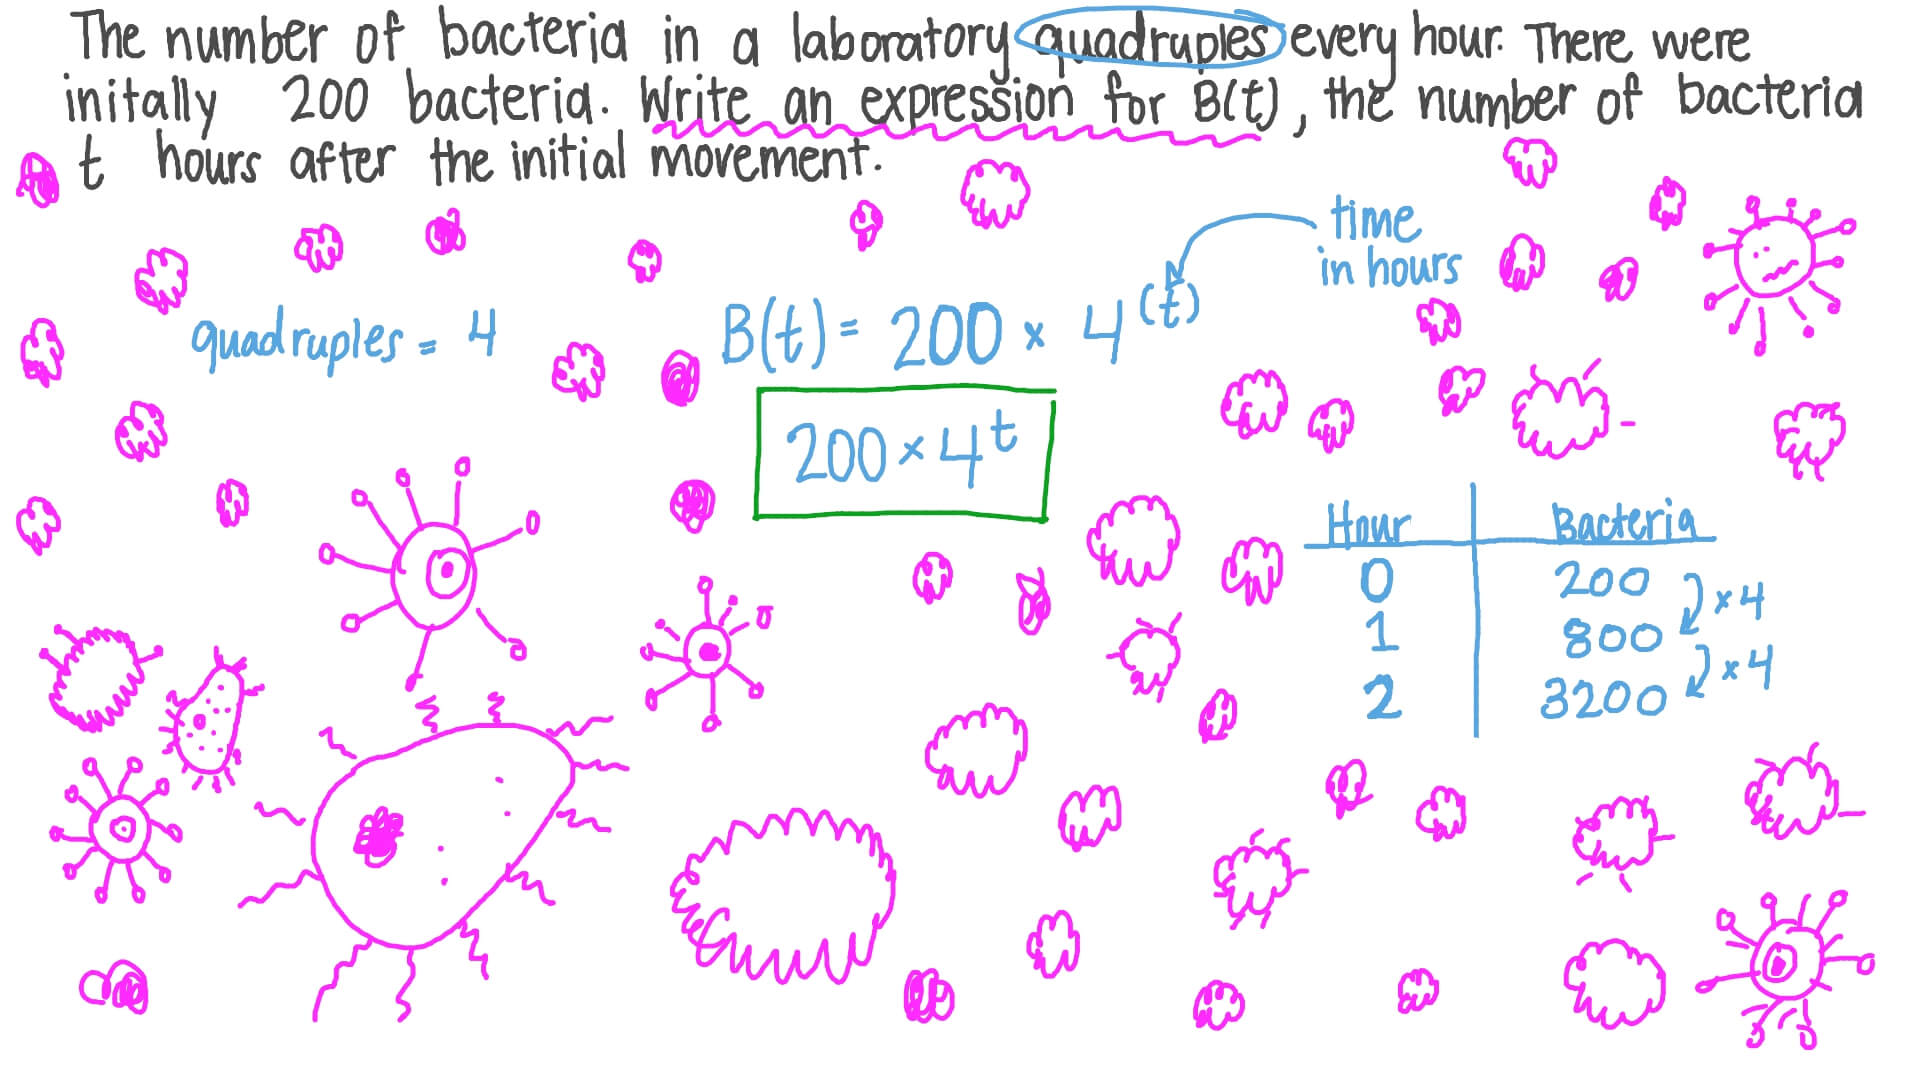 The number of bacteria in a laboratory quadruples every hour. There were
initally 200 bacteria. Write an expression for B(t), the number of bacteria
t hours after the initial movement.
time
in hours
quadruples = 4
B(t) = 200 × 4^(t)
200 × 4^t
Hour Bacteria
0 200
×4
1 800
×4
2 3200